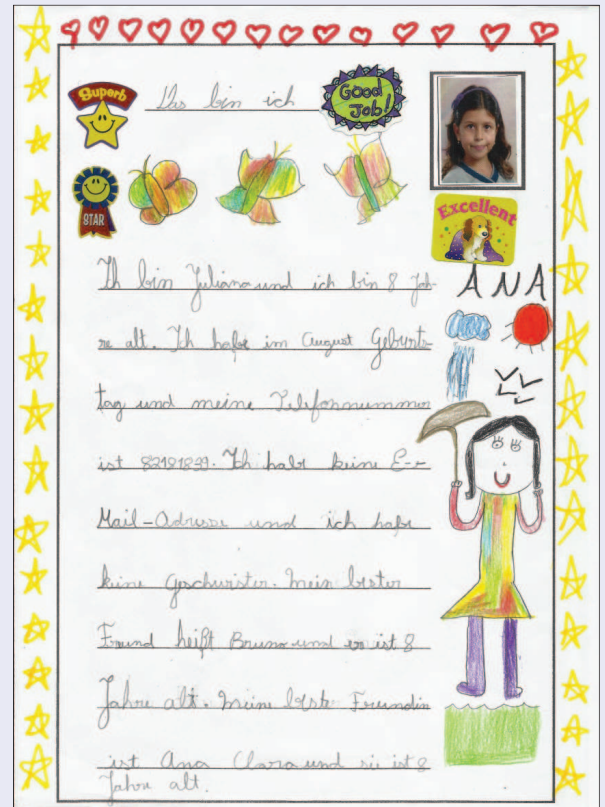 Superb
Das bin ich
Good
Job!
STAR
Excellent
Ich bin Juliana und ich bin 8 Jah-
re alt. Ich habe im August Geburts-
ANA
tag und meine Telefonnummer
ist 82181839. Ich habe keine E-
Mail-Adresse und ich habe
keine Geschwister. Mein bester
Freund heißt Bruno und er ist 8
Jahre alt. Meine beste Freundin
ist Ana Clara und sie ist 8
Jahre alt.